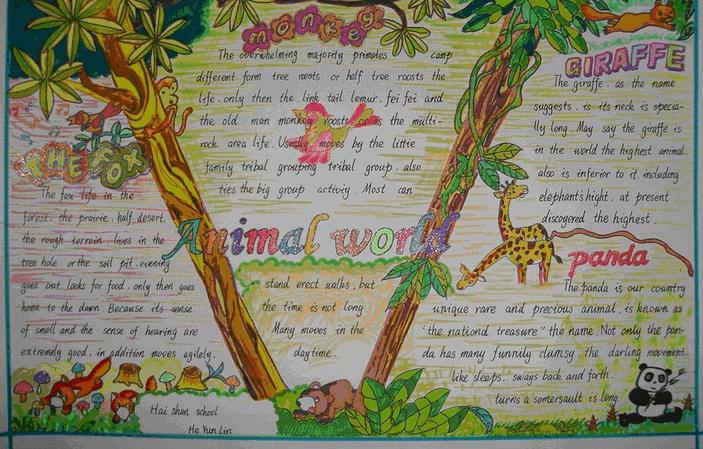 monkey
The overwhelming majority primates camp
different form tree roosts or half tree roosts the
life, only then the link tail lemur, fei fei and
the old man monkey roosts or is the multi-
rock area life. Usually moves by the little
family tribal grouping tribal group. also
ties the big group activiy. Most can
stand erect walks, but
the time is not long.
Many moves in the
daytime.
THE FOX
The fox life in the
forest. the prairie. half desert.
the rough terrain. lives in the
tree hole or the soil pit. evening
goes out looks for food. only then goes
home to the dawn Because its sense
of smell and the sense of hearing are
extremely good. in addition moves agilely.
Animal world
GIRAFFE
The giraffe. as the name
suggests. is its neck is specia-
lly long. May say the giraffe is
in the world the highest animal.
also is inferior to it including
elephant's hight. at present
discovered the highest.
panda
The panda is our country
unique rare and precious animal. is known as
"the national treasure" the name. Not only the pan-
da has many funnily clumsy. the darling movement.
like sleeps. sways back and forth.
turns a somersault is long.
Hai shan school
He Yun Lin